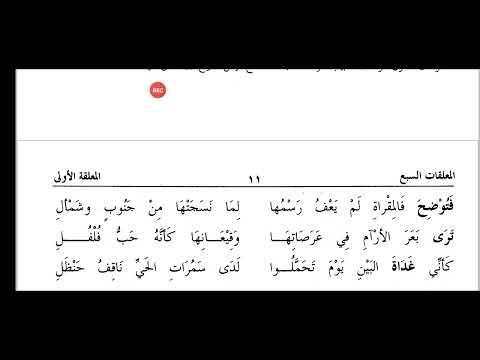 REC
المعلقات السبع ١١ المعلقة الأولى
فَتُوْضِحَ فَالمِقْرَاةِ لَمْ يَعْفُ رَسْمُها لِمَا نَسَجَتْهَا مِنْ جَنُوبٍ وشَمْألِ
تَرَى بَعَرَ الأرْآمِ فِي عَرَصَاتِهَا وَقِيْعَانِهَا كَأنَّهُ حَبُّ فُلْفُلِ
كَأنِّي غَدَاةَ البَيْنِ يَوْمَ تَحَمَّلُوا لَدَى سَمُرَاتِ الحَيِّ نَاقِفُ حَنْظَلِ